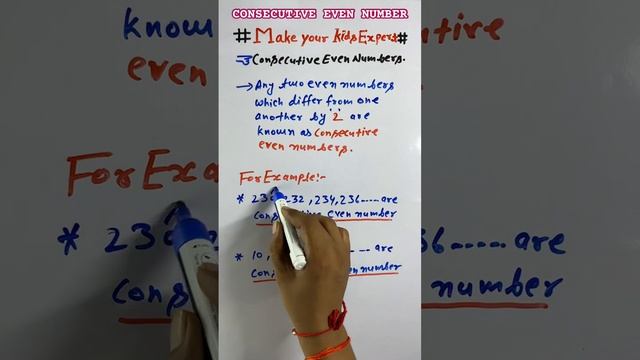 CONSECUTIVE EVEN NUMBER
# Make your kids Expert #
→ Consecutive Even Numbers.
→ Any two even numbers
which differ from one
another by '2' are
known as consecutive
even numbers.
For Example:-
* 230, 232, 234, 236 ..... are
consecutive even number
* 10, ... are
even number